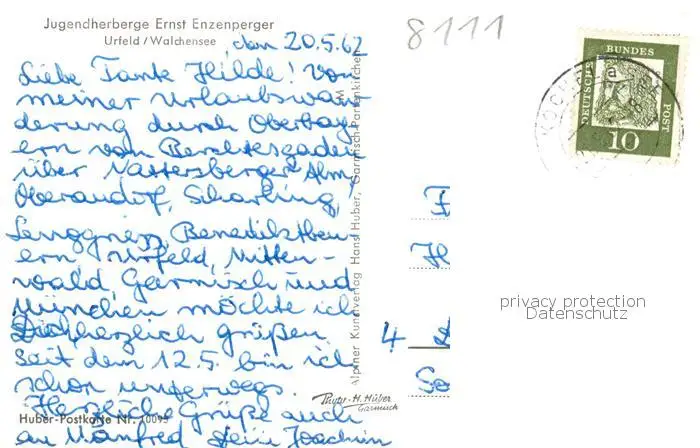 Jugendherberge Ernst Enzenperger
Urfeld / Walchensee
8111
den 20.5.62
Liebe Tante Hilde! Von
meiner Urlaubswan-
derung durch Oberbay-
ern von Berchtesgaden
über Nattersberger Alm,
Oberaudorf, Scharling,
Lenggries, Benediktbeu-
ern Urfeld, Mitten-
wald, Garmisch und
München möchte ich
Dich herzlich grüßen.
Seit dem 12.5. bin ich
schon unterwegs.
Herzliche Grüße auch
an Manfred Dein Joachim
Huber-Postkarte Nr. 10095
Alpiner Kunstverlag Hans Huber, Garmisch-Partenkirchen
Phot. H. Huber
Garmisch
DEUTSCHE
BUNDES
POST
10
KOCH
4
privacy protection
Datenschutz